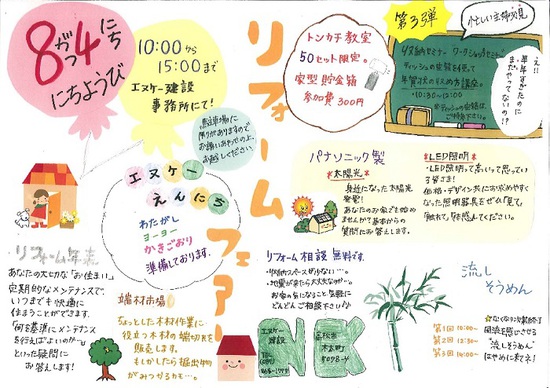 8がつ4にち
にちようび
10:00から
15:00まで
エヌケー建設
事務所にて!
駐車場に
限りがありますので
お誘いあわせの上、
お越しください。
リフォームフェアー
トンカチ教室
50セット限定。
家型貯金箱
参加費300円
第3弾
忙しい主婦必見
え!!
半年すぎたのに
まだやってないの!?
10:30~12:00
エヌケー
えんにち
わたがし
ヨーヨー
かきごおり
準備しております。
パナソニック製
*太陽光*
身近になった太陽光
発電!
あなたのお家でも始め
ませんか?基本からの
質問にお答えします。
*LED照明*
・LED照明って高いって思ってい
る皆さま!
価格・デザイン共にお求めやすく
なった照明器具をぜひ「見て」
「触れて」「体感してください。
リフォーム年表
あなたの大切な「お住まい」。
定期的なメンテナンスで、
いつまでも快適に
住まうことができます。
「何年基準にメンテナンス
を行えばよいのか…」
といった疑問に
お答えします!
端材市場
ちょっとした木材作業に
役立つ木材の端切れを
販売します。
もしかしたら掘出物が
みつかるかも…。
リフォーム相談 無料です。
・収納スペースが少ない…。
・地震が来たら大丈夫かな…。
お家の気になること、気軽に
どんどんご相談下さい♪
NK
エヌケー
建設
高松市
木太町
流し
そうめん
第1回 10:00~
第2回 12:30~
第3回 14:00~
「流しそうめん」
はやめに来てネ!